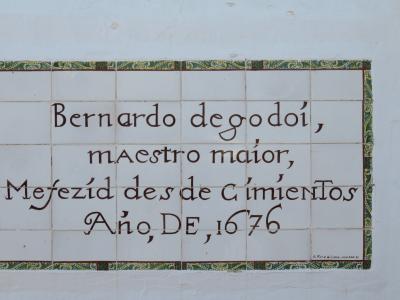 Bernardo degodoi,
maestro maior,
Mefezid des de Cimientos
Año, DE, 1676